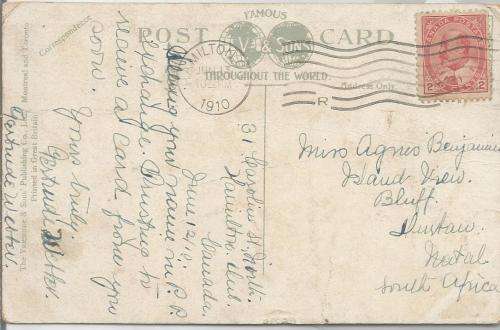 FAMOUS
POST CARD
V & SONS
THROUGHOUT THE WORLD
Correspondence
Address Only
HAMILTON
1910
R
CANADA POSTAGE
2 2
31 Caroline St. North.
Hamilton Ont.
Canada.
June 12/10.
Seeing your name in P.P.
exchange. Trusting to
receive a card from you
soon.
Yours truly.
Gertrude
Gertrude
Miss Agnes Benjamin
Island View.
Bluff.
Durban.
Natal
South Africa
The Valentine & Sons' Publishing Co. Ltd. Montreal and Toronto
Printed in Great Britain